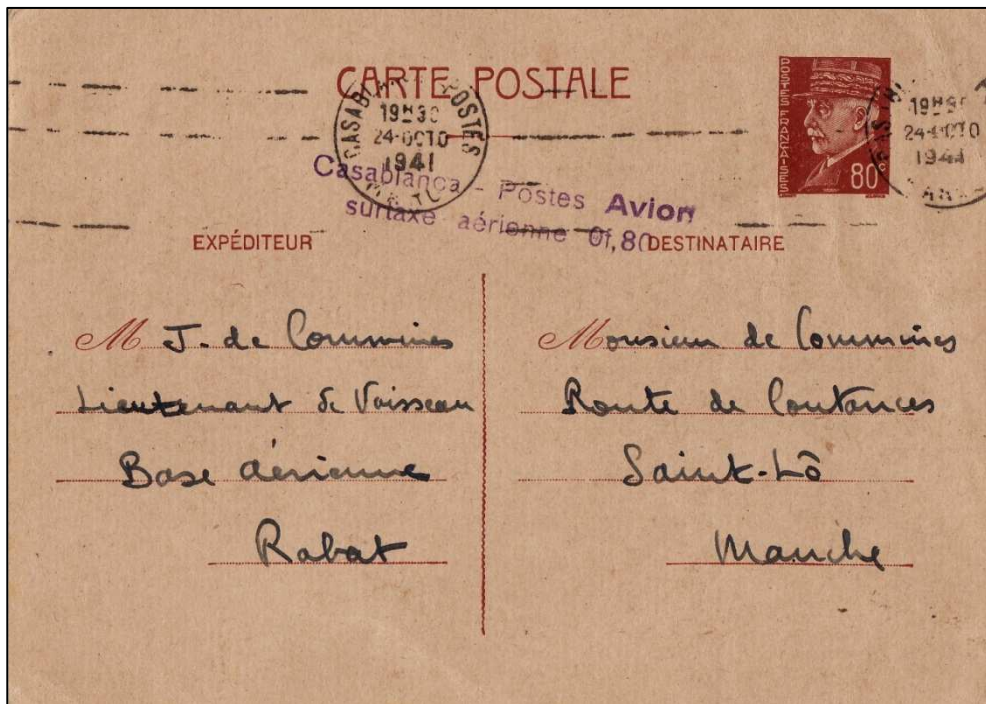 CARTE POSTALE
POSTES FRANÇAISES
80c
CASABLANCA POSTES
19H30
24-OCTO
1941
MAROC
19H30
24-OCTO
1941
Casablanca - Postes Avion
surtaxe aérienne 0f,80
EXPÉDITEUR
M J. de Commines
Lieutenant de Vaisseau
Base aérienne
Rabat
DESTINATAIRE
Monsieur de Commines
Route de Coutances
Saint-Lô
Manche